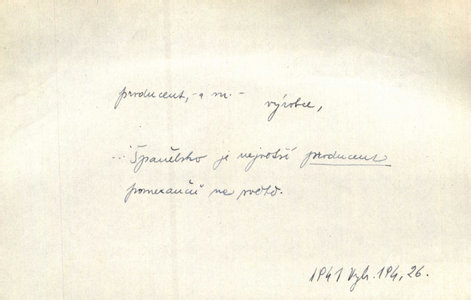 producent, -a m. -
výrobce,
... Španělsko je největší producent
pomerančů na světě.
1941 Vybr. 194, 26.